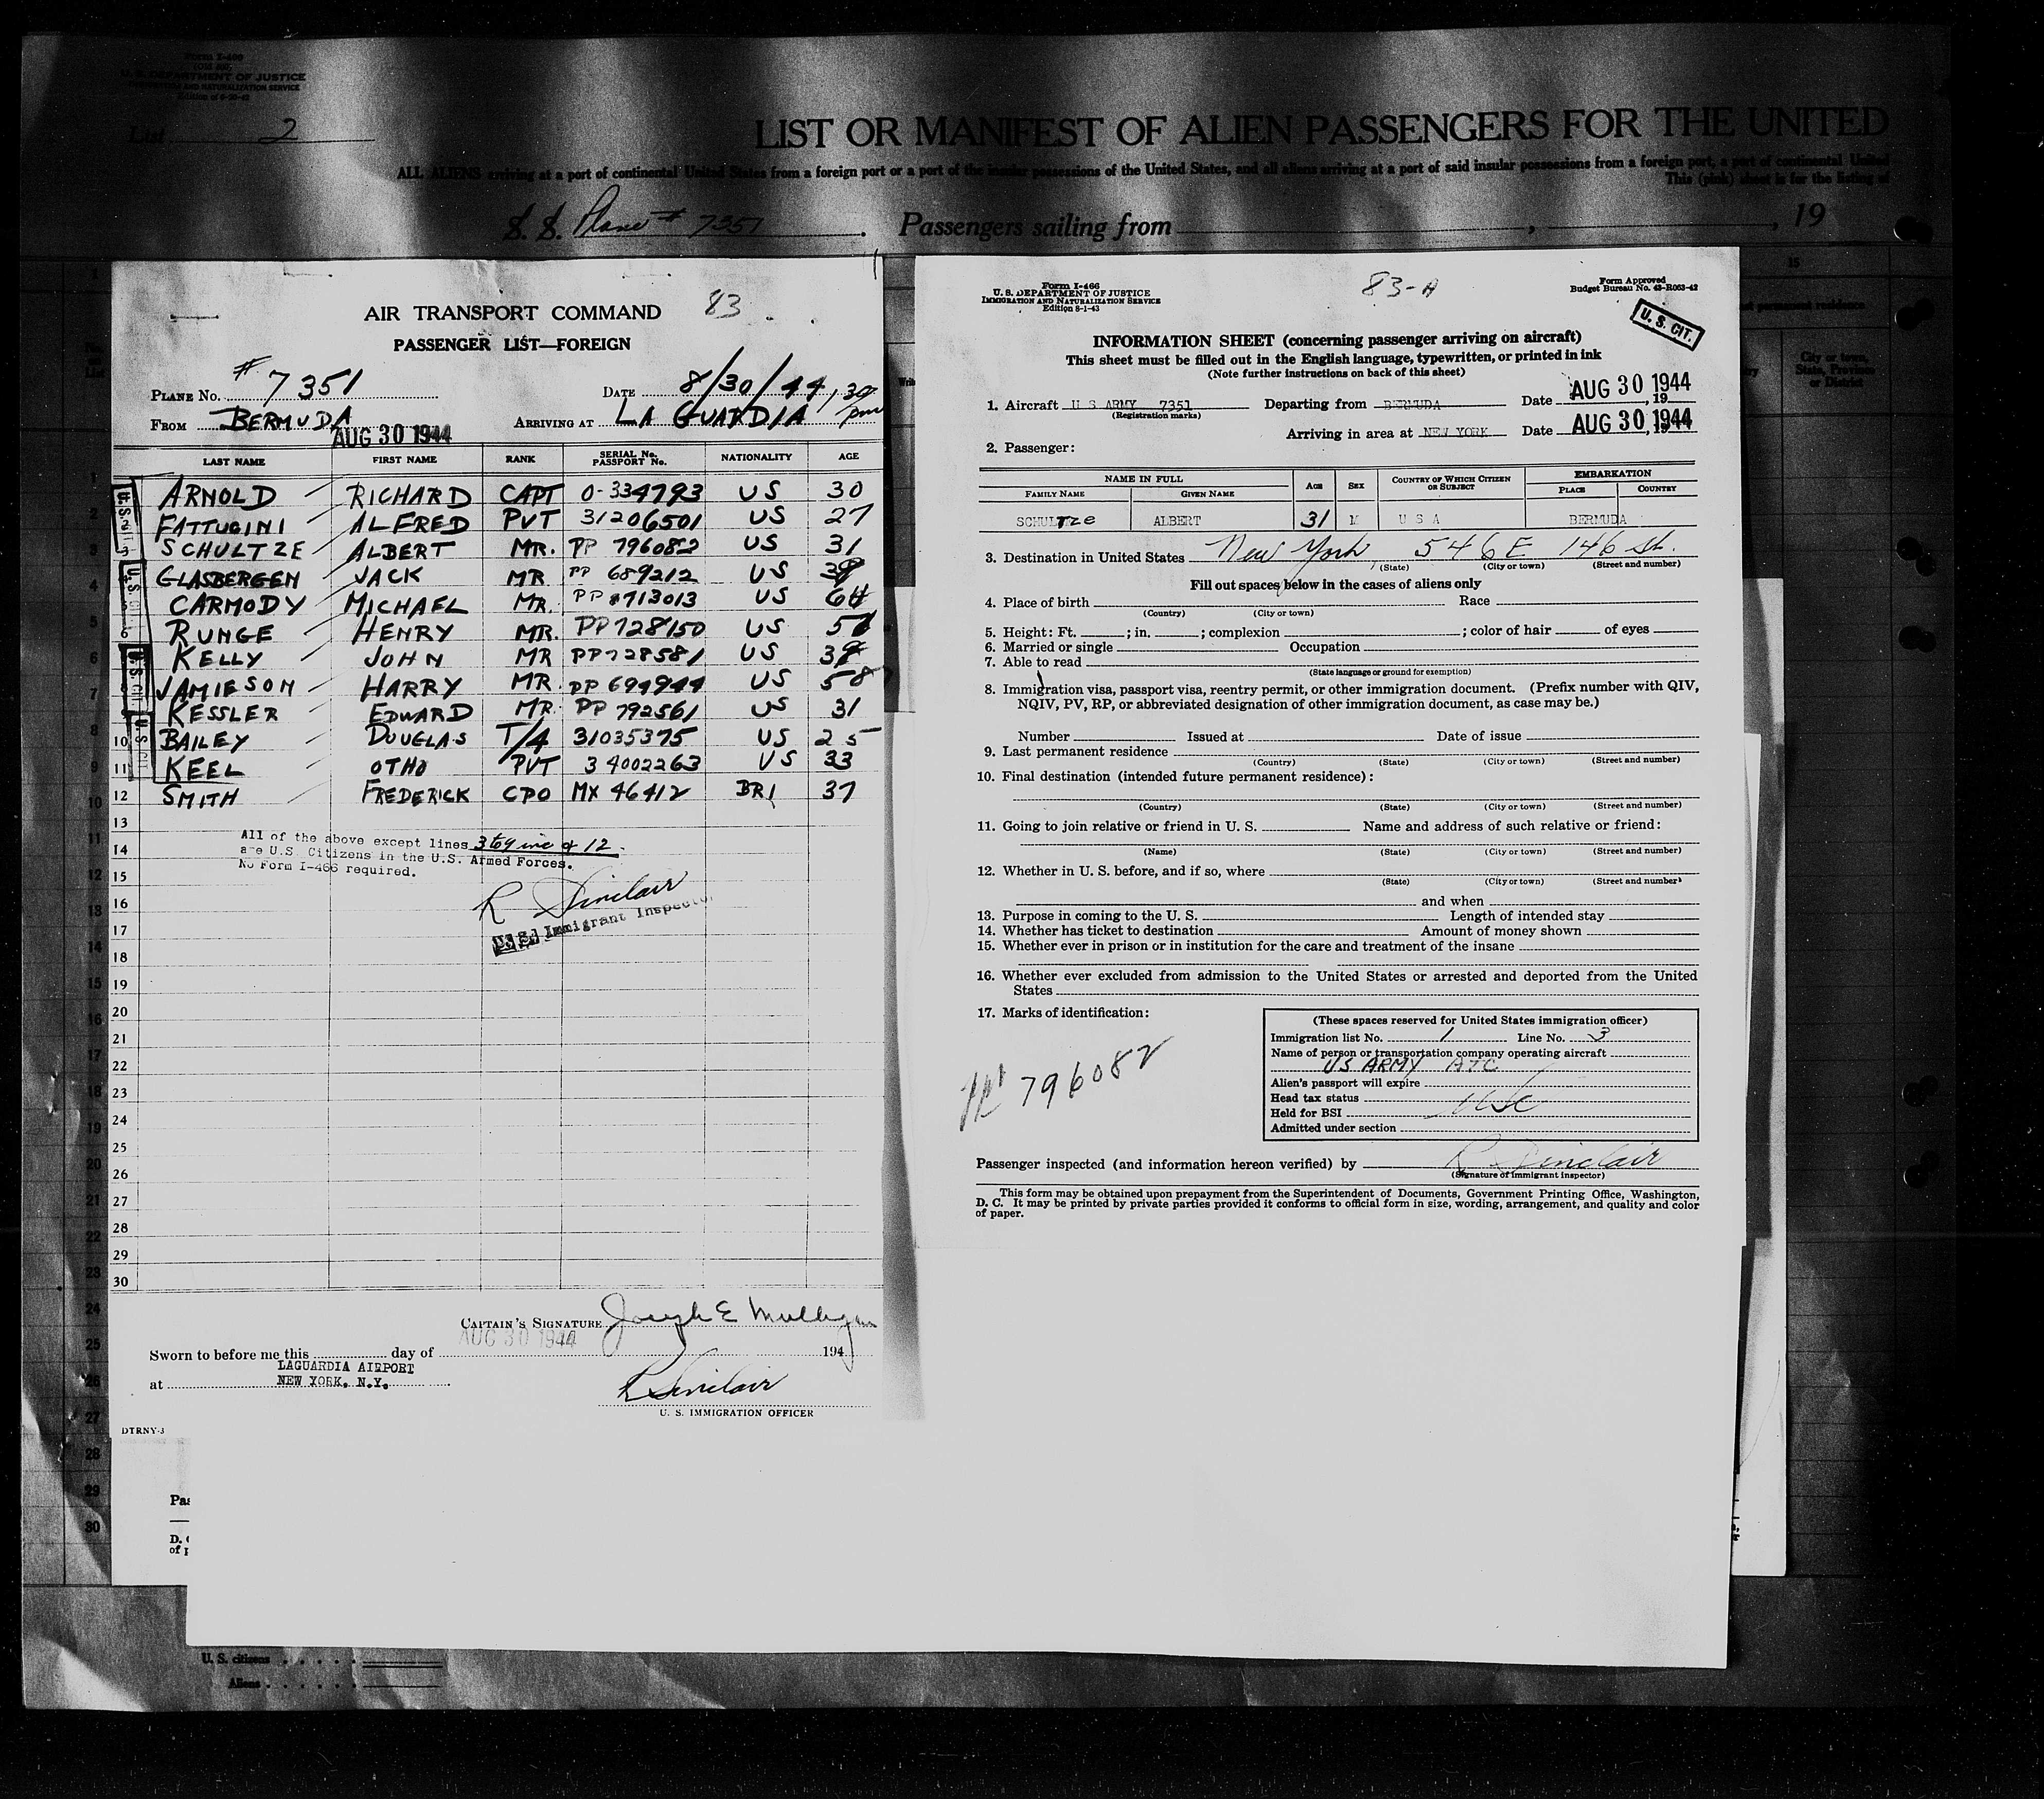 Form I-400
U. S. DEPARTMENT OF JUSTICE
IMMIGRATION AND NATURALIZATION SERVICE
List 2
LIST OR MANIFEST OF ALIEN PASSENGERS FOR THE UNITED
ALL ALIENS arriving at a port of continental United States from a foreign port or a port of the insular possessions of the United States, and all aliens arriving at a port of said insular possessions from a foreign port, a port of continental United
This (pink) sheet is for the listing of
S. S. Plane # 7351 . Passengers sailing from , , 19
AIR TRANSPORT COMMAND 83
PASSENGER LIST—FOREIGN
PLANE No. # 7351 DATE 8/30/44
FROM BERMUDA ARRIVING AT LA GUARDIA
AUG 30 1944
LAST NAME FIRST NAME RANK SERIAL No. PASSPORT No. NATIONALITY AGE
ARNOLD RICHARD CAPT O-334793 US 30
FATTUGINI ALFRED PVT 31206501 US 27
SCHULTZE ALBERT MR. PP 796082 US 31
GLASBERGEN JACK MR PP 689212 US
CARMODY MICHAEL MR. PP 713013 US 64
RUNGE HENRY MR. PP 728150 US
KELLY JOHN MR PP 728581 US
JAMIESON HARRY MR. PP 694944 US 58
KESSLER EDWARD MR. PP 792561 US 31
10 BAILEY DOUGLAS T/4 31035375 US 25
11 KEEL OTHO PVT 34002263 US 33
12 SMITH FREDERICK CPO MX 46412 BRI 37
13
14
15
16
17
18
19
20
21
22
23
24
25
26
27
28
29
30
All of the above except lines 3 to 9 inc & 12.
are U.S. Citizens in the U.S. Armed Forces.
No Form I-466 required.
R Sinclair
U.S. Immigrant Inspector
CAPTAIN'S SIGNATURE Joseph E Mulligan
AUG 30 1944
Sworn to before me this day of 194
LAGUARDIA AIRPORT
at NEW YORK, N.Y.
R Sinclair
U. S. IMMIGRATION OFFICER
DTRNY-3
Form I-466
U. S. DEPARTMENT OF JUSTICE
IMMIGRATION AND NATURALIZATION SERVICE
Edition 8-1-43
83-A
Form Approved
Budget Bureau No. 43-R063-42
U. S. CIT.
INFORMATION SHEET (concerning passenger arriving on aircraft)
This sheet must be filled out in the English language, typewritten, or printed in ink
(Note further instructions on back of this sheet)
1. Aircraft U S ARMY 7351 Departing from BERMUDA Date AUG 30 1944, 19
(Registration marks)
Arriving in area at NEW YORK Date AUG 30 1944, 19
2. Passenger:
NAME IN FULL AGE SEX COUNTRY OF WHICH CITIZEN OR SUBJECT EMBARKATION
FAMILY NAME GIVEN NAME PLACE COUNTRY
SCHULTZE ALBERT 31 M U S A BERMUDA
3. Destination in United States New York 546 E 146 St.
(State) (City or town) (Street and number)
Fill out spaces below in the cases of aliens only
4. Place of birth Race
(Country) (City or town)
5. Height: Ft. ; in. ; complexion ; color of hair of eyes
6. Married or single Occupation
7. Able to read
(State language or ground for exemption)
8. Immigration visa, passport visa, reentry permit, or other immigration document. (Prefix number with QIV,
NQIV, PV, RP, or abbreviated designation of other immigration document, as case may be.)
Number Issued at Date of issue
9. Last permanent residence
(Country) (State) (City or town) (Street and number)
10. Final destination (intended future permanent residence):
(Country) (State) (City or town) (Street and number)
11. Going to join relative or friend in U. S. Name and address of such relative or friend:
(Name) (State) (City or town) (Street and number)
12. Whether in U. S. before, and if so, where
(State) (City or town) (Street and number)
and when
13. Purpose in coming to the U. S. Length of intended stay
14. Whether has ticket to destination Amount of money shown
15. Whether ever in prison or in institution for the care and treatment of the insane
16. Whether ever excluded from admission to the United States or arrested and deported from the United
States
17. Marks of identification:
796082
(These spaces reserved for United States immigration officer)
Immigration list No. 1 Line No. 3
Name of person or transportation company operating aircraft
US ARMY ATC
Alien's passport will expire
Head tax status
Held for BSI USC
Admitted under section
Passenger inspected (and information hereon verified) by R Sinclair
(Signature of immigrant inspector)
This form may be obtained upon prepayment from the Superintendent of Documents, Government Printing Office, Washington,
D. C. It may be printed by private parties provided it conforms to official form in size, wording, arrangement, and quality and color
of paper.
U. S. citizens
Aliens